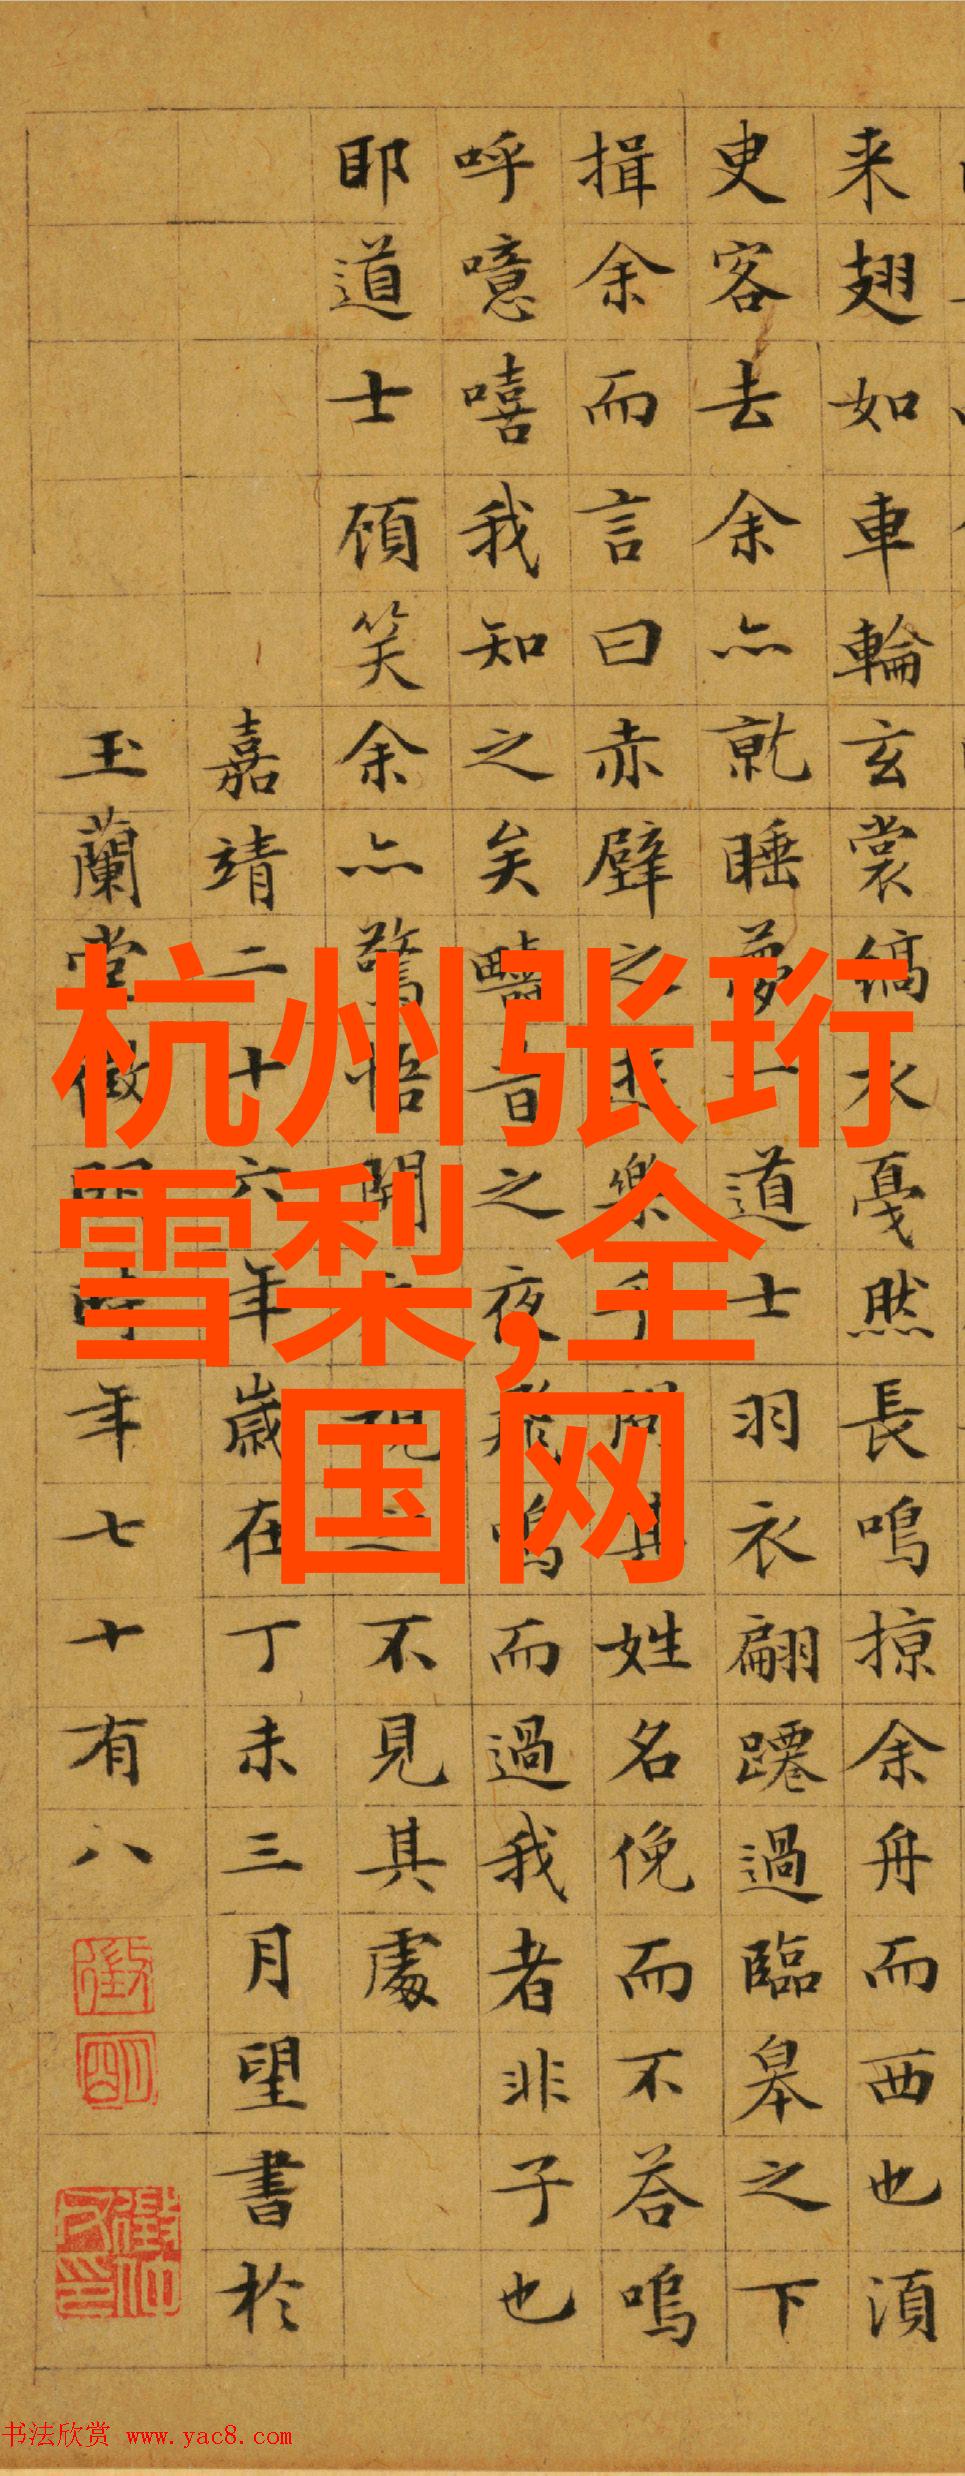 来翅如車輪玄裳縞衣戛然長鳴掠余舟而西也湏
叓客去余亦就睡夢一道士羽衣翩躚過臨皋之下
揖余而言曰赤壁之遊樂乎問其姓名俛而不荅嗚
呼噫嘻我知之矣疇昔之夜飛鳴而過我者非子也
耶道士顧笑余亦驚悟開視之不見其處
嘉靖二十六年歲在丁未三月望書於
玉蘭堂徵明時年七十有八
徵
明
杭州张珩
雪梨,全
国网
书法欣赏 www.yac8.com